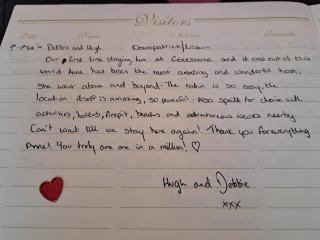 Visitors
Date Name Address Remarks
Debbie and Hugh Downpatrick/Lisburn
Our first time staying here at and it was out of this
world. Anne has been the most amazing and wonderful host,
she went above and beyond. The cabin is so cosy, the
location itself is amazing, so peaceful. Also spoilt for choice with
activities, hottub, firepit, beaches and adventurous walks nearby.
Can't wait till we stay here again! Thank you for everything
Anne! You truly are one in a million! ♡
Hugh and Debbie
xxx